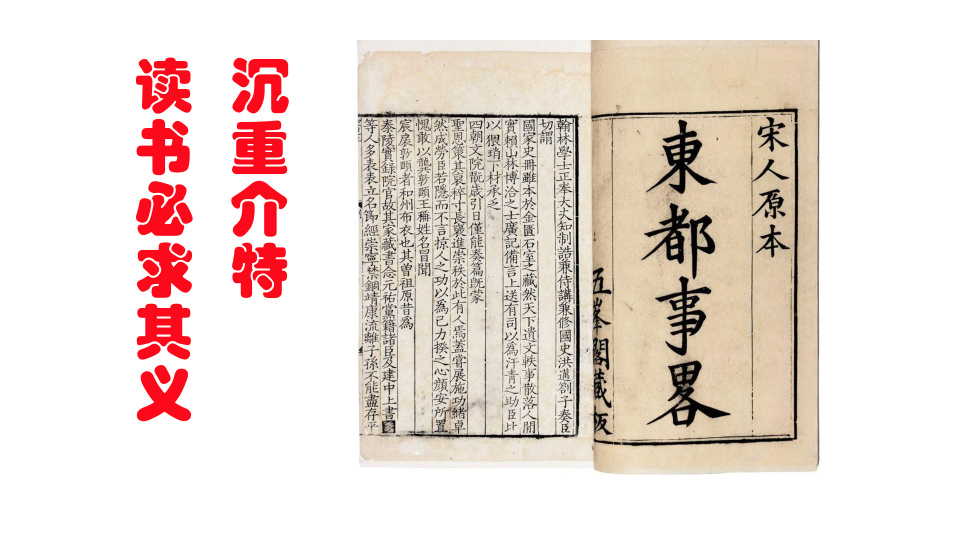 沉重介特
读书必求其义
宋人原本
東都事畧
五峯閣藏板
翰林學士正奉大夫知制誥兼侍講兼修國史洪邁劄子奏臣
切謂
國家史冊雖本於金匱石室之藏然天下遺文軼事散落人間
實賴山林博洽之士廣記備言上送有司以為汗青之助臣比
以猥瑣下材承乏
四朝文院翫歲引日僅能奏篇旣蒙
聖恩策其衰稡寸長褒進崇秩於此有人焉蓋嘗展施功緒卓
然成勞臣若隱而不言掠人之功以為己力揆之心顏安所置
愧敢以龔敦頤王稱姓名冒聞
宸扆敦頤者和州布衣也其曾祖原昔為
泰陵實錄院官故其家藏書念元祐黨籍諸臣及建中上書
等人多表表立名節經崇寧禁錮靖康流離子孫不能盡存平